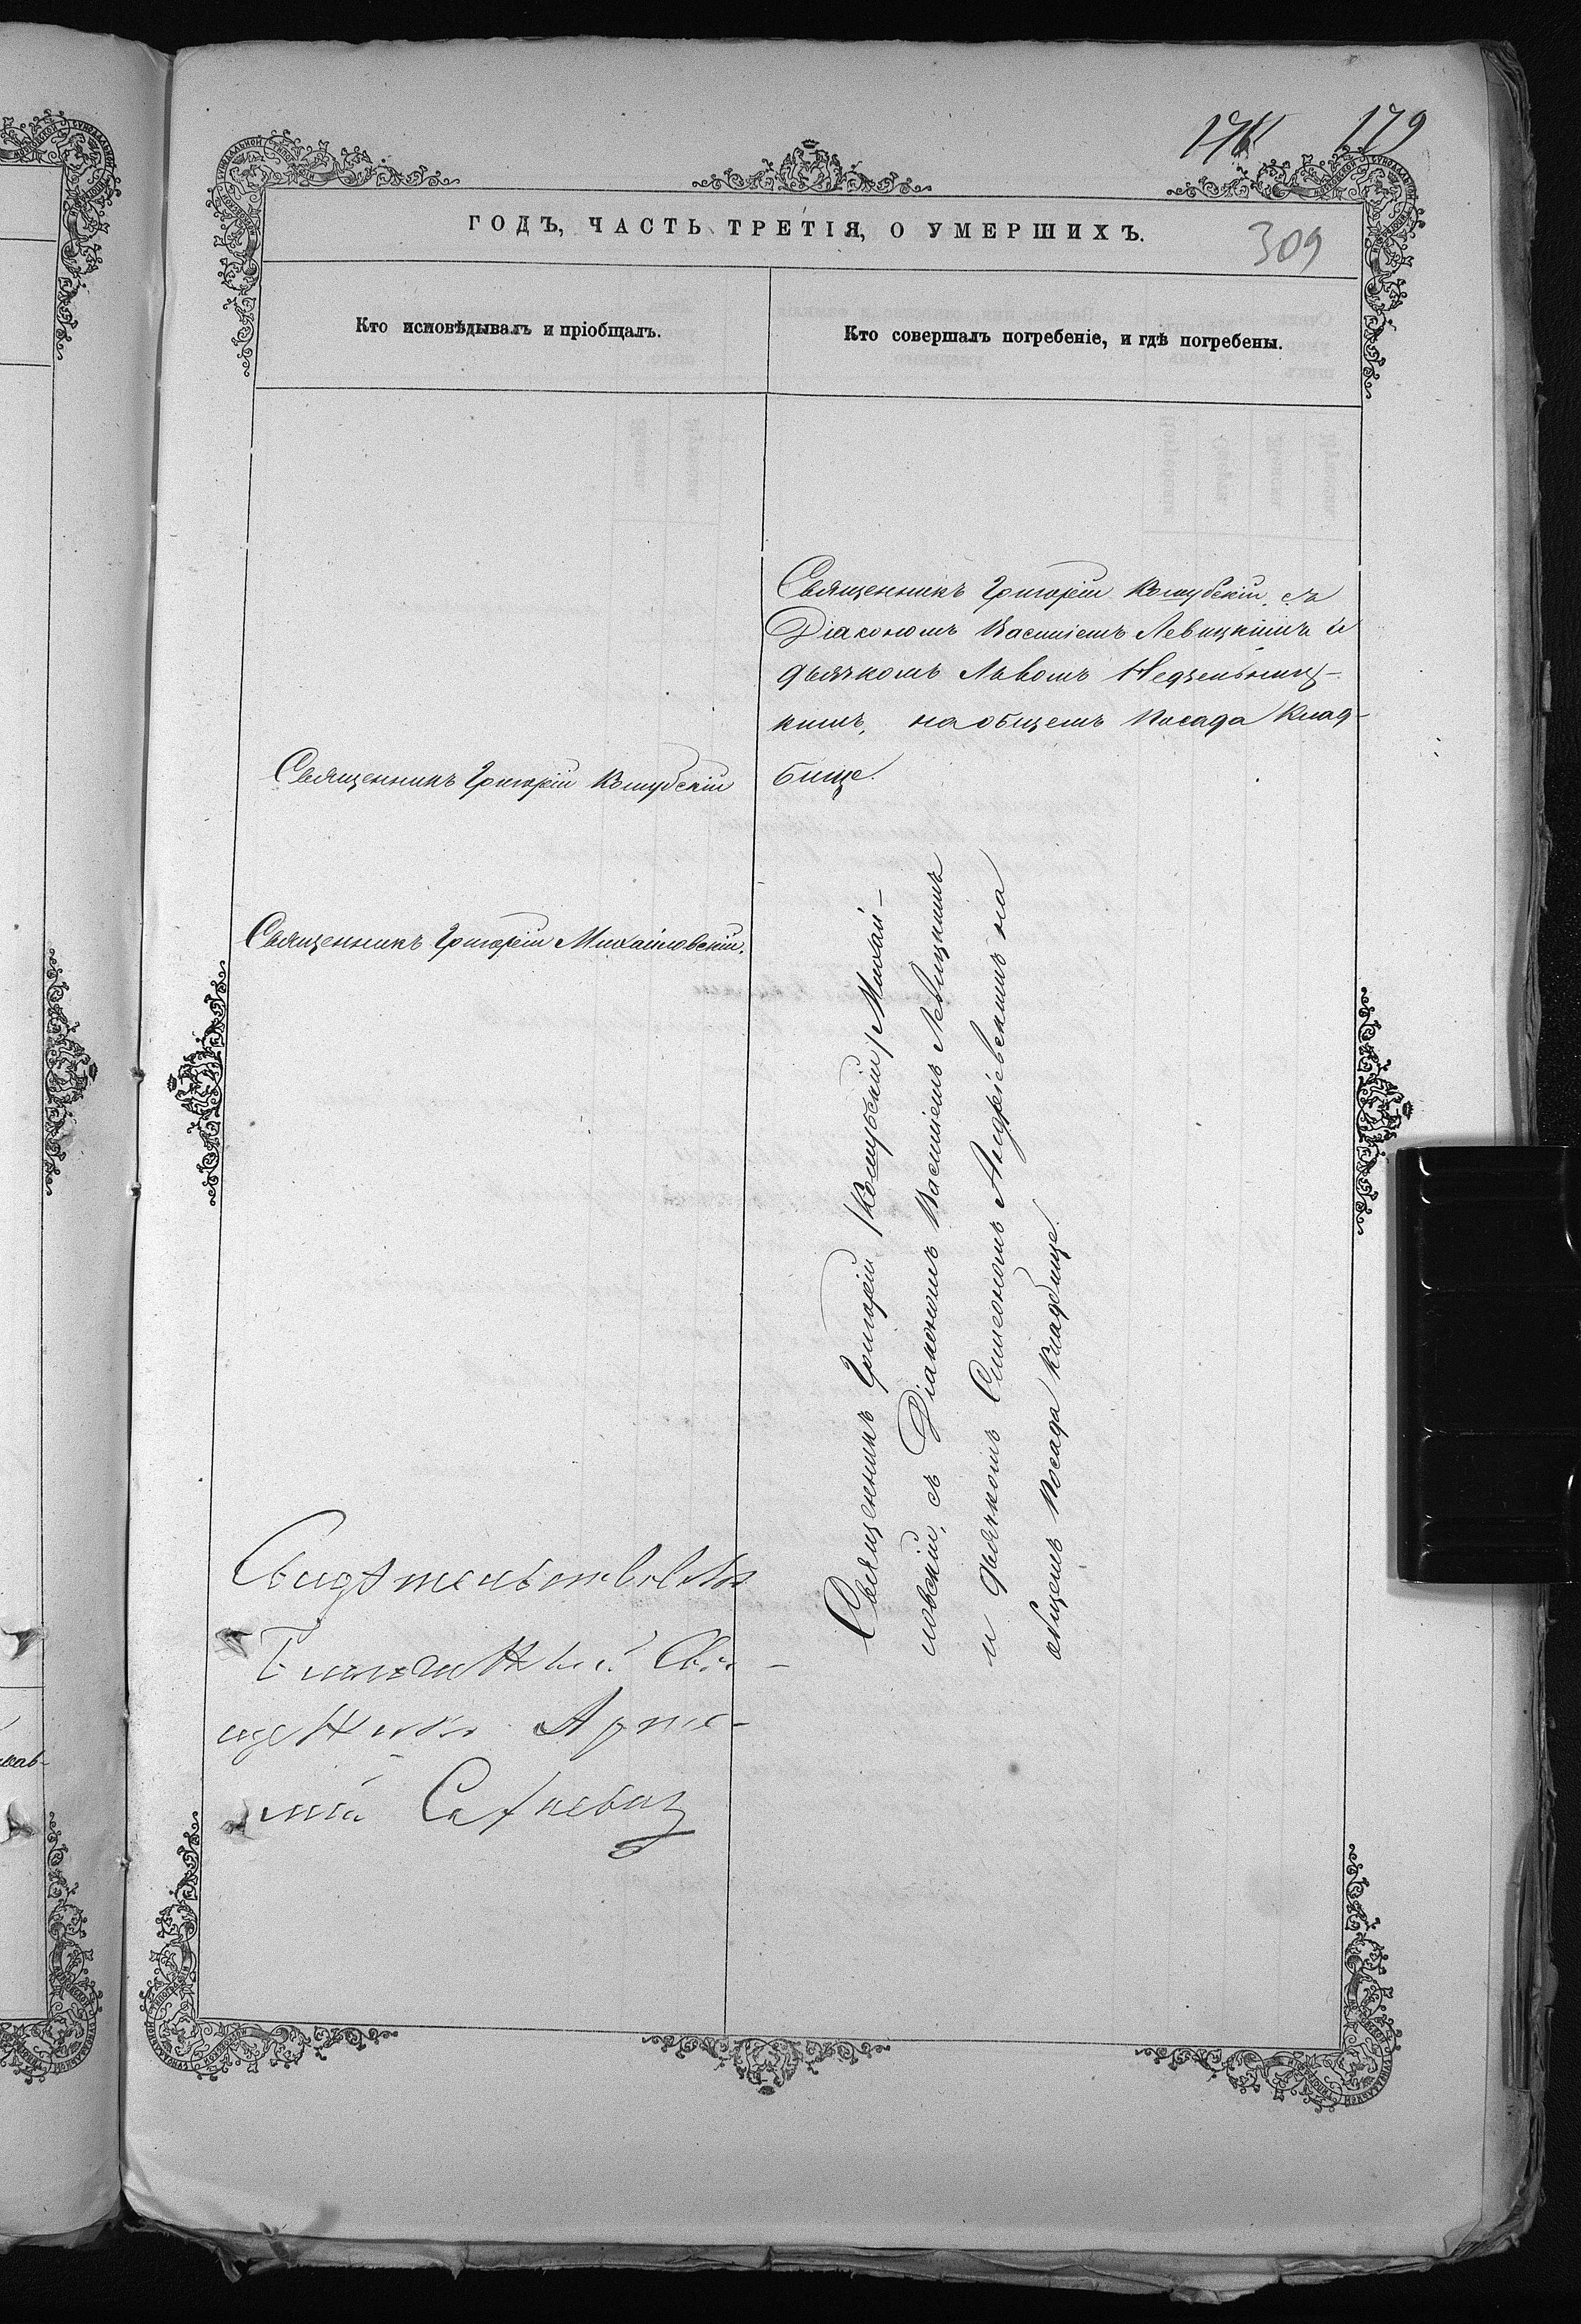 179
309
ГОДЪ, ЧАСТЬ ТРЕТІЯ, О УМЕРШИХЪ.
Кто исповѣдывалъ и пріобщалъ.
Кто совершалъ погребеніе, и гдѣ погребены.
Священникъ Григорій Кошубскій съ
Діакономъ Василіемъ Левицкимъ и
дьячкомъ Львомъ Недзельниц-
кимъ, на общемъ Посада Клад-
бище.
Священникъ Григорій Кошубскій
Священникъ Григорій Михайловскій.
Священникъ Григорій /Кошубскій/ Михай-
ловскій, съ Діакономъ Василіемъ Левицкимъ
и дьячкомъ Симеономъ Андріевскимъ на
общемъ Посада Кладбище.
Свидѣтельствовалъ
Благочинный Свя-
щенникъ Арте-
мій